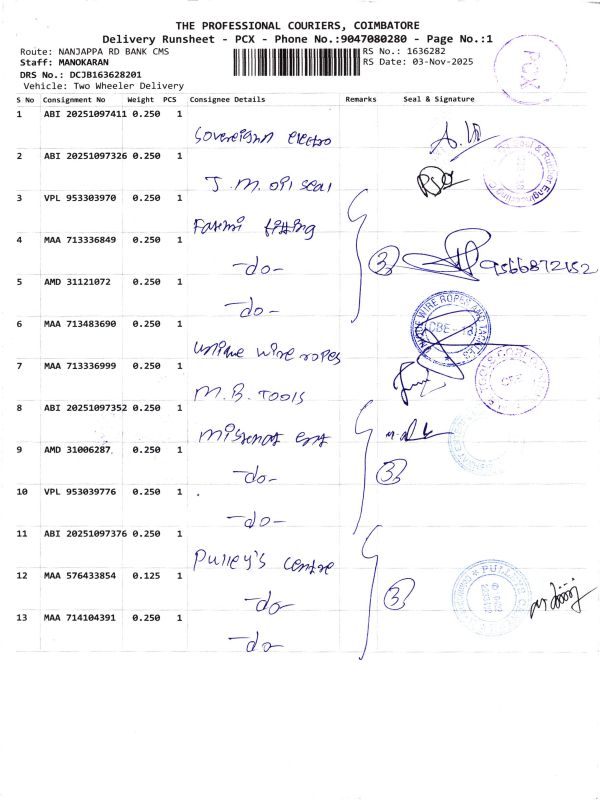 THE PROFESSIONAL COURIERS, COIMBATORE
Delivery Runsheet - PCX - Phone No.:9047080280 - Page No.:1
Route: NANJAPPA RD BANK CMS
RS No.: 1636282
Staff: MANOKARAN
RS Date: 03-Nov-2025
DRS No.: DCJB163628201
Vehicle: Two Wheeler Delivery
PCX
S No Consignment No Weight PCS Consignee Details Remarks Seal & Signature
1 ABI 20251097411 0.250 1
Sovereignn electro
2 ABI 20251097326 0.250 1
J.M. oil seal
3 VPL 953303970 0.250 1
Farmi fitting
4 MAA 713336849 0.250 1
-do-
3
9566872152
5 AMD 31121072 0.250 1
-do-
6 MAA 713483690 0.250 1
unique wire ropes
7 MAA 713336999 0.250 1
M.B. Tools
8 ABI 20251097352 0.250 1
9 AMD 31006287 0.250 1
-do-
3
10 VPL 953039776 0.250 1
-do-
11 ABI 20251097376 0.250 1
Pulley's centre
12 MAA 576433854 0.125 1
-do-
3
13 MAA 714104391 0.250 1
-do-